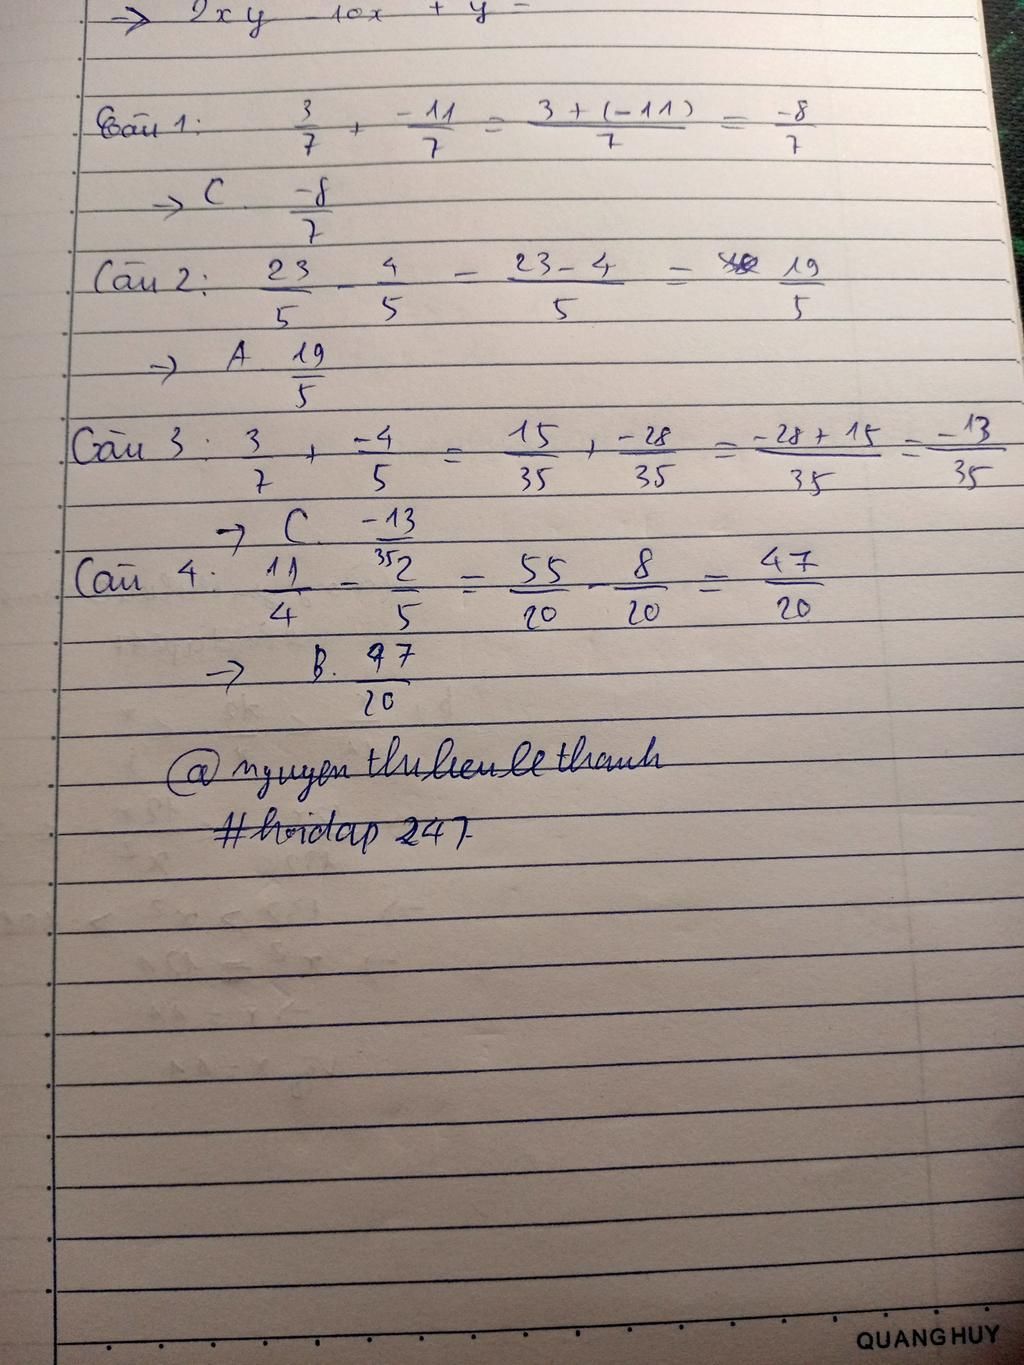 → 2xy - 10x + y =
Câu 1: 3/7 + -11/7 = 3 + (-11)/7 = -8/7
→ C. -8/7
Câu 2: 23/5 - 4/5 = 23 - 4/5 = 19/5
→ A. 19/5
Câu 3: 3/7 + -4/5 = 15/35 + -28/35 = -28 + 15/35 = -13/35
→ C. -13/35
Câu 4: 11/4 - 2/5 = 55/20 - 8/20 = 47/20
→ B. 47/20
@nguyenthihienlethanh
#hoidap 247
QUANG HUY